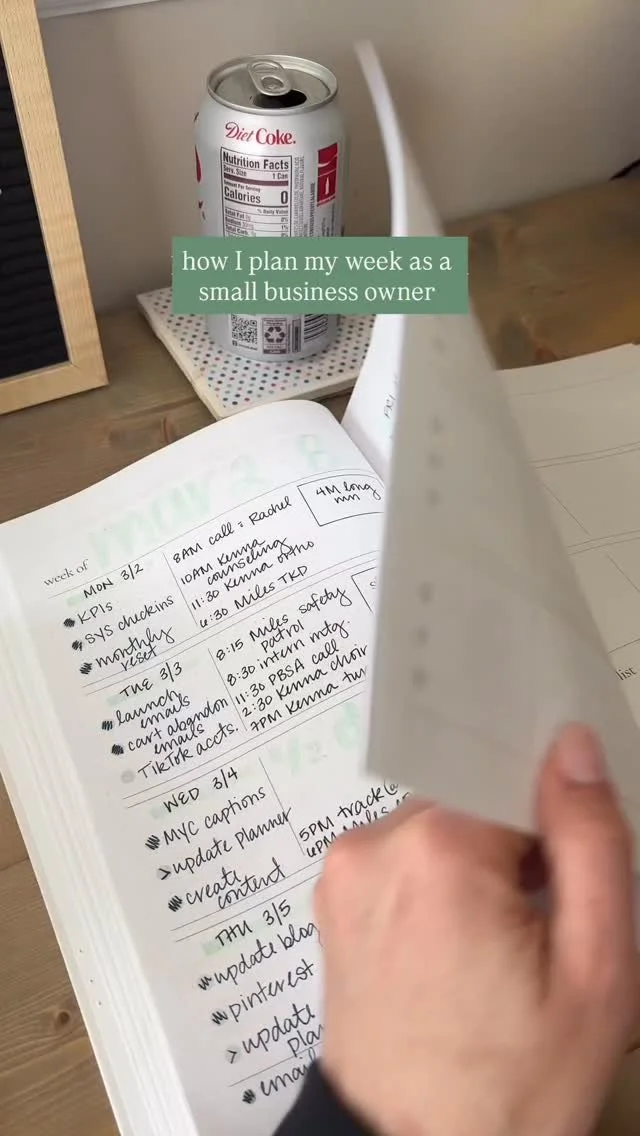 Diet Coke.
Nutrition Facts
Serv. Size 1 Can
Amount Per Serving
Calories 0
% Daily Value
Total Fat 0g 0%
how I plan my week as a
small business owner
week of
MON 3/2
KPIs
sys checkins
monthly
reset
8AM call: Rachel
10AM Kenna
counseling
11:30 Kenna ortho
6:30 Miles TKD
4M long
run
TUE 3/3
launch
emails
cart abandon
emails
TikTok accts.
8:15 Miles safety
patrol
8:30 intern mtg.
11:30 PBSA call
2:30 Kenna choir
7PM Kenna
WED 3/4
MYC captions
> update planner
create
content
5PM track @
6PM Miles
THU 3/5
update blog
pinterest
> update
email
list